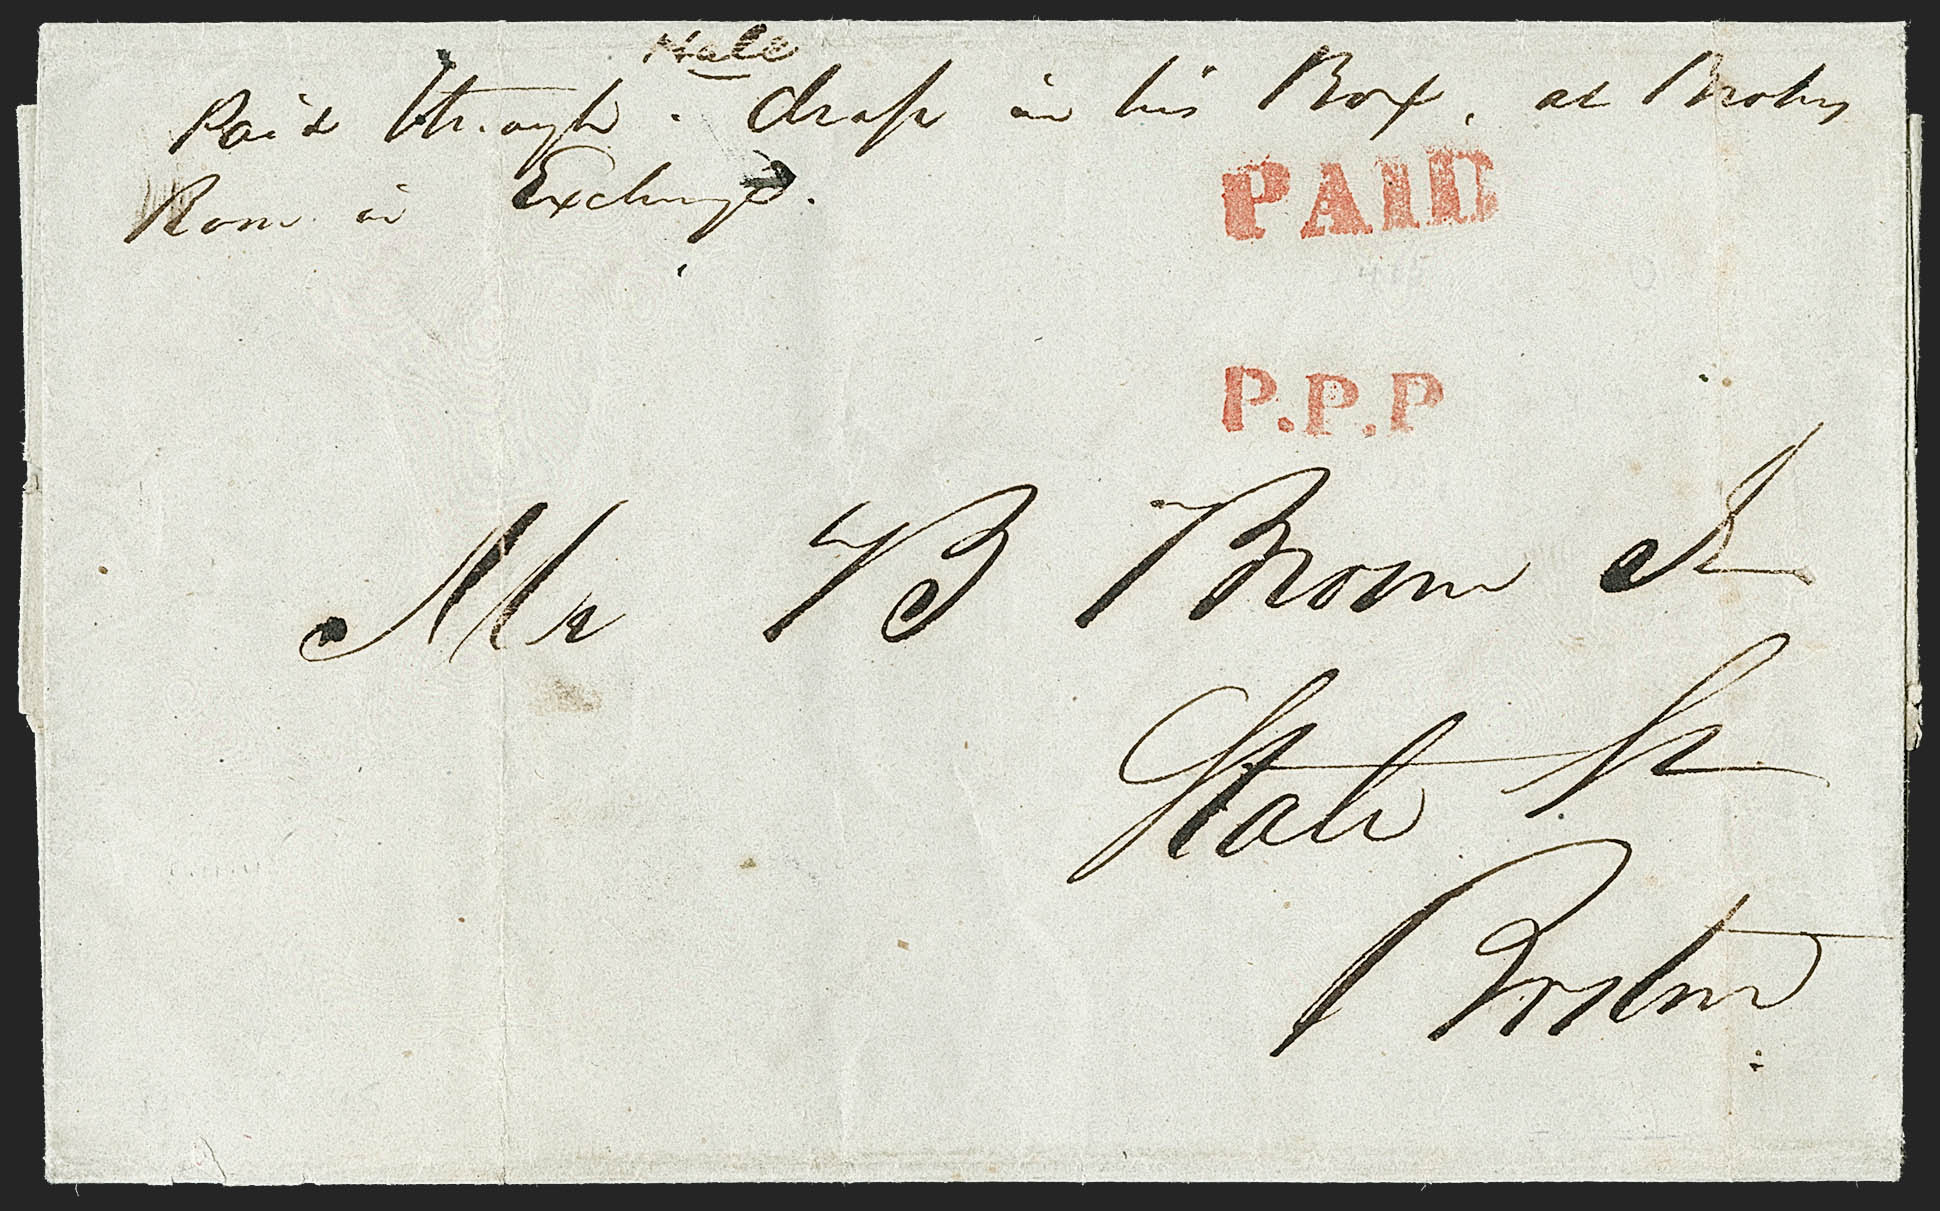 Hale
Paid through. drop in his Box, at Brokers
Room in Exchange.
PAID
P.P.P
Mr B Brown Jr
State St
Boston